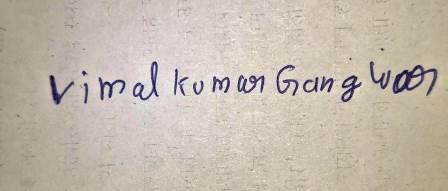 Vimal kumar Gangwar